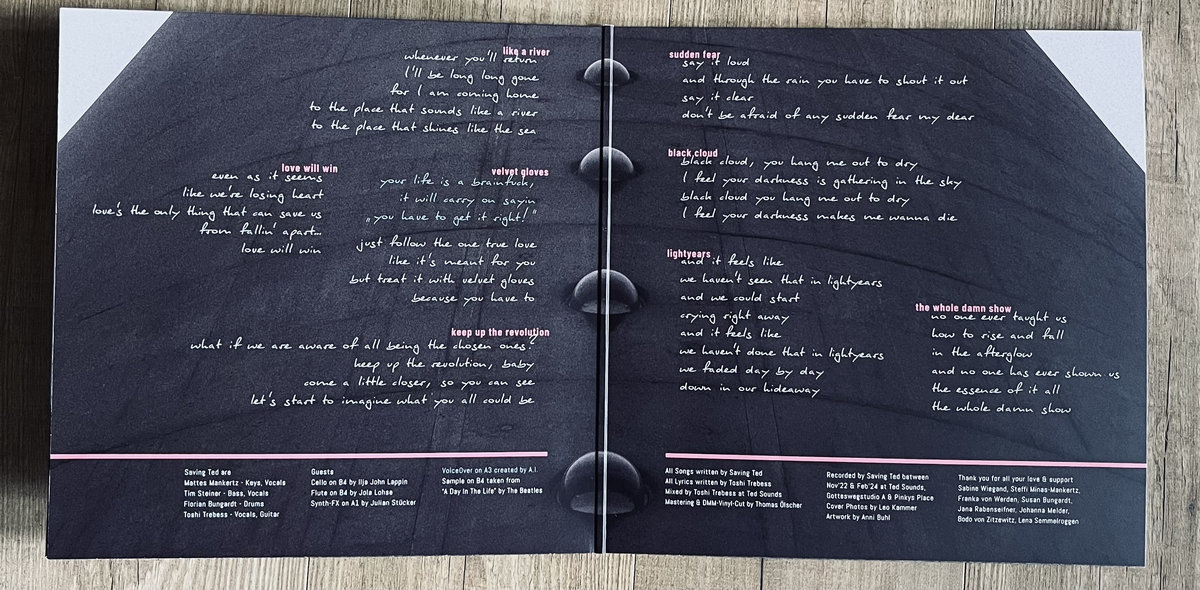 like a river
whenever you'll return
I'll be long long gone
for I am coming home
to the place that sounds like a river
to the place that shines like the sea
love will win
even as it seems
like we're losing heart
love's the only thing that can save us
from fallin' apart...
love will win
velvet gloves
your life is a brainfuck,
it will carry on sayin
„you have to get it right!"
just follow the one true love
like it's meant for you
but treat it with velvet gloves
because you have to
keep up the revolution
what if we are aware of all being the chosen ones?
keep up the revolution, baby
come a little closer, so you can see
let's start to imagine what you all could be
Saving Ted are
Mattes Mankertz - Keys, Vocals
Tim Steiner - Bass, Vocals
Florian Bungardt - Drums
Toshi Trebess - Vocals, Guitar
Guests
Cello on B4 by Ilja John Lappin
Flute on B4 by Jola Lohse
Synth-FX on A1 by Julian Stücker
VoiceOver on A3 created by A.I.
Sample on B4 taken from
"A Day In The Life" by The Beatles
sudden fear
say it loud
and through the rain you have to shout it out
say it clear
don't be afraid of any sudden fear my dear
black cloud
black cloud, you hang me out to dry
I feel your darkness is gathering in the sky
black cloud you hang me out to dry
I feel your darkness makes me wanna die
lightyears
and it feels like
we haven't seen that in lightyears
and we could start
crying right away
and it feels like
we haven't done that in lightyears
we faded day by day
down in our hideaway
the whole damn show
no one ever taught us
how to rise and fall
in the afterglow
and no one has ever shown us
the essence of it all
the whole damn show
All Songs written by Saving Ted
All Lyrics written by Toshi Trebess
Mixed by Toshi Trebess at Ted Sounds
Mastering & DMM-Vinyl-Cut by Thomas Ölscher
Recorded by Saving Ted between
Nov'22 & Feb'24 at Ted Sounds,
Gotteswegstudio A & Pinkys Place
Cover Photos by Leo Kammer
Artwork by Anni Buhl
Thank you for all your love & support
Sabine Wiegand, Steffi Minas-Mankertz,
Franka von Werden, Susan Bungardt,
Jana Rabenseifner, Johanna Melder,
Bodo von Zitzewitz, Lena Semmelroggen